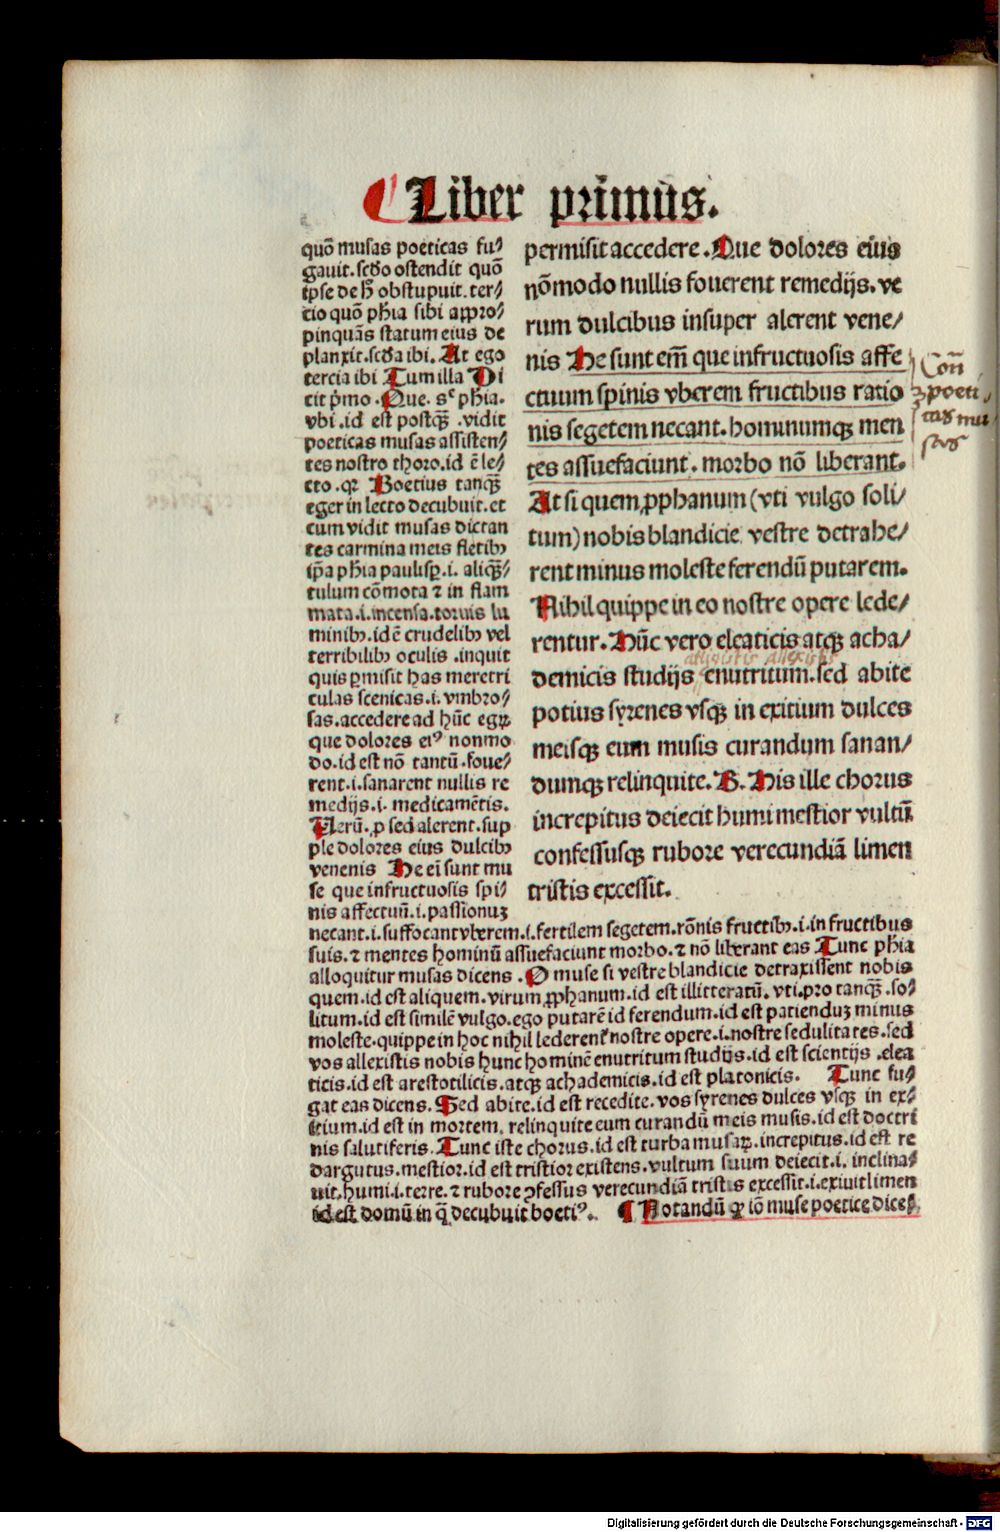 Liber primus.
quō musas poeticas fu/
gauit. scďo ostendit quō
ipse de h̄ obstupuit. ter/
cio quō phīa sibi appro/
pinquās statum eius de
planxit. scďa ibi. At ego
tercia ibi Tum illa Di
cit p̄mo. Que. sᶜ phīa.
vbi .id est postqꝫ̄ .vidit
poeticas musas assisten/
tes nostro thoro. id ē le/
cto. qꝛ Boetius tanqꝫ̄
eger in lecto decubuit. et
cum vidit musas dictan
tes carmina meis fletibꝫ
ip̄a phīa paulisꝑ .i. aliqꝫ̄/
tulum cōmota ⁊ in flam
mata .i. incensa. toruis lu
minibꝫ. id ē crudelibꝫ vel
terribilibꝫ oculis .inquit
quis ꝑmisit has meretri
culas scenicas .i. vmbro/
sas. accedere ad hūc egꝝ
que dolores eiꝰ nonmo
do. id est nō tantū .foue/
rent .i. sanarent nullis re
medijs .i. medicamētis.
Verū. ꝓ sed alerent. sup
ple dolores eius dulcibꝫ
venenis He ei̅ sunt mu
se que infructuosis spi/
nis affectuū .i. passionuꝫ
permisit accedere. Que dolores eius
nōmodo nullis fouerent remedijs. ve
rum dulcibus insuper alerent vene/
nis He sunt em̄ que infructuosis affe
ctuum spinis vberem fructibus ratio
nis segetem necant. hominumqꝫ men
tes assuefaciunt. morbo nō liberant.
At si quem ꝓphanum (vti vulgo soli/
tum) nobis blandicie vestre detrahe/
rent minus moleste ferendū putarem.
Nihil quippe in eo nostre opere lede/
rentur. Hūc vero eleaticis atqꝫ acha/
demicis studijs enutritum. sed abite
potius syrenes vsqꝫ in exitium dulces
meisqꝫ eum musis curandum sanan/
dumqꝫ relinquite. B. His ille chorus
increpitus deiecit humi mestior vultū
confessusqꝫ rubore verecundiā limen
tristis excessit.
Con̄
poeti
cas mu
sas
necant .i. suffocant vberem .i. fertilem segetem. rōnis fructibꝫ .i. in fructibus
suis. ⁊ mentes hominū assuefaciunt morbo. ⁊ nō liberant eas Tunc phīa
alloquitur musas dicens . O muse si vestre blandicie detraxissent nobis
quem. id est aliquem. virum ꝓphanum. id est illitteratū. vti. pro tanqꝫ̄ .so/
litum. id est similē vulgo. ego putarē id ferendum. id est patienduꝫ minus
moleste. quippe in hoc nihil lederent᷑ nostre opere .i. nostre sedulitates. sed
vos allexistis nobis hunc hominē enutritum studijs. id est scientijs .elea
ticis. id est arestotilicis. atqꝫ achademicis. id est platonicis. Tunc fu/
gat eas dicens. Sed abite. id est recedite. vos syrenes dulces vsqꝫ in ex/
itium. id est in mortem. relinquite eum curandū meis musis. id est doctri
nis salutiferis. Tunc iste chorus. id est turba musaꝝ. increpitus. id est re
dargutus. mestior. id est tristior existens. vultum suum deiecit .i. inclina/
uit. humi .i. terre. ⁊ rubore ꝯfessus verecundiā tristis excessit .i. exiuit limen
id est domū in q̄ decubuit boetiꝰ. ¶ Notandū ꝙ iō muse poetice